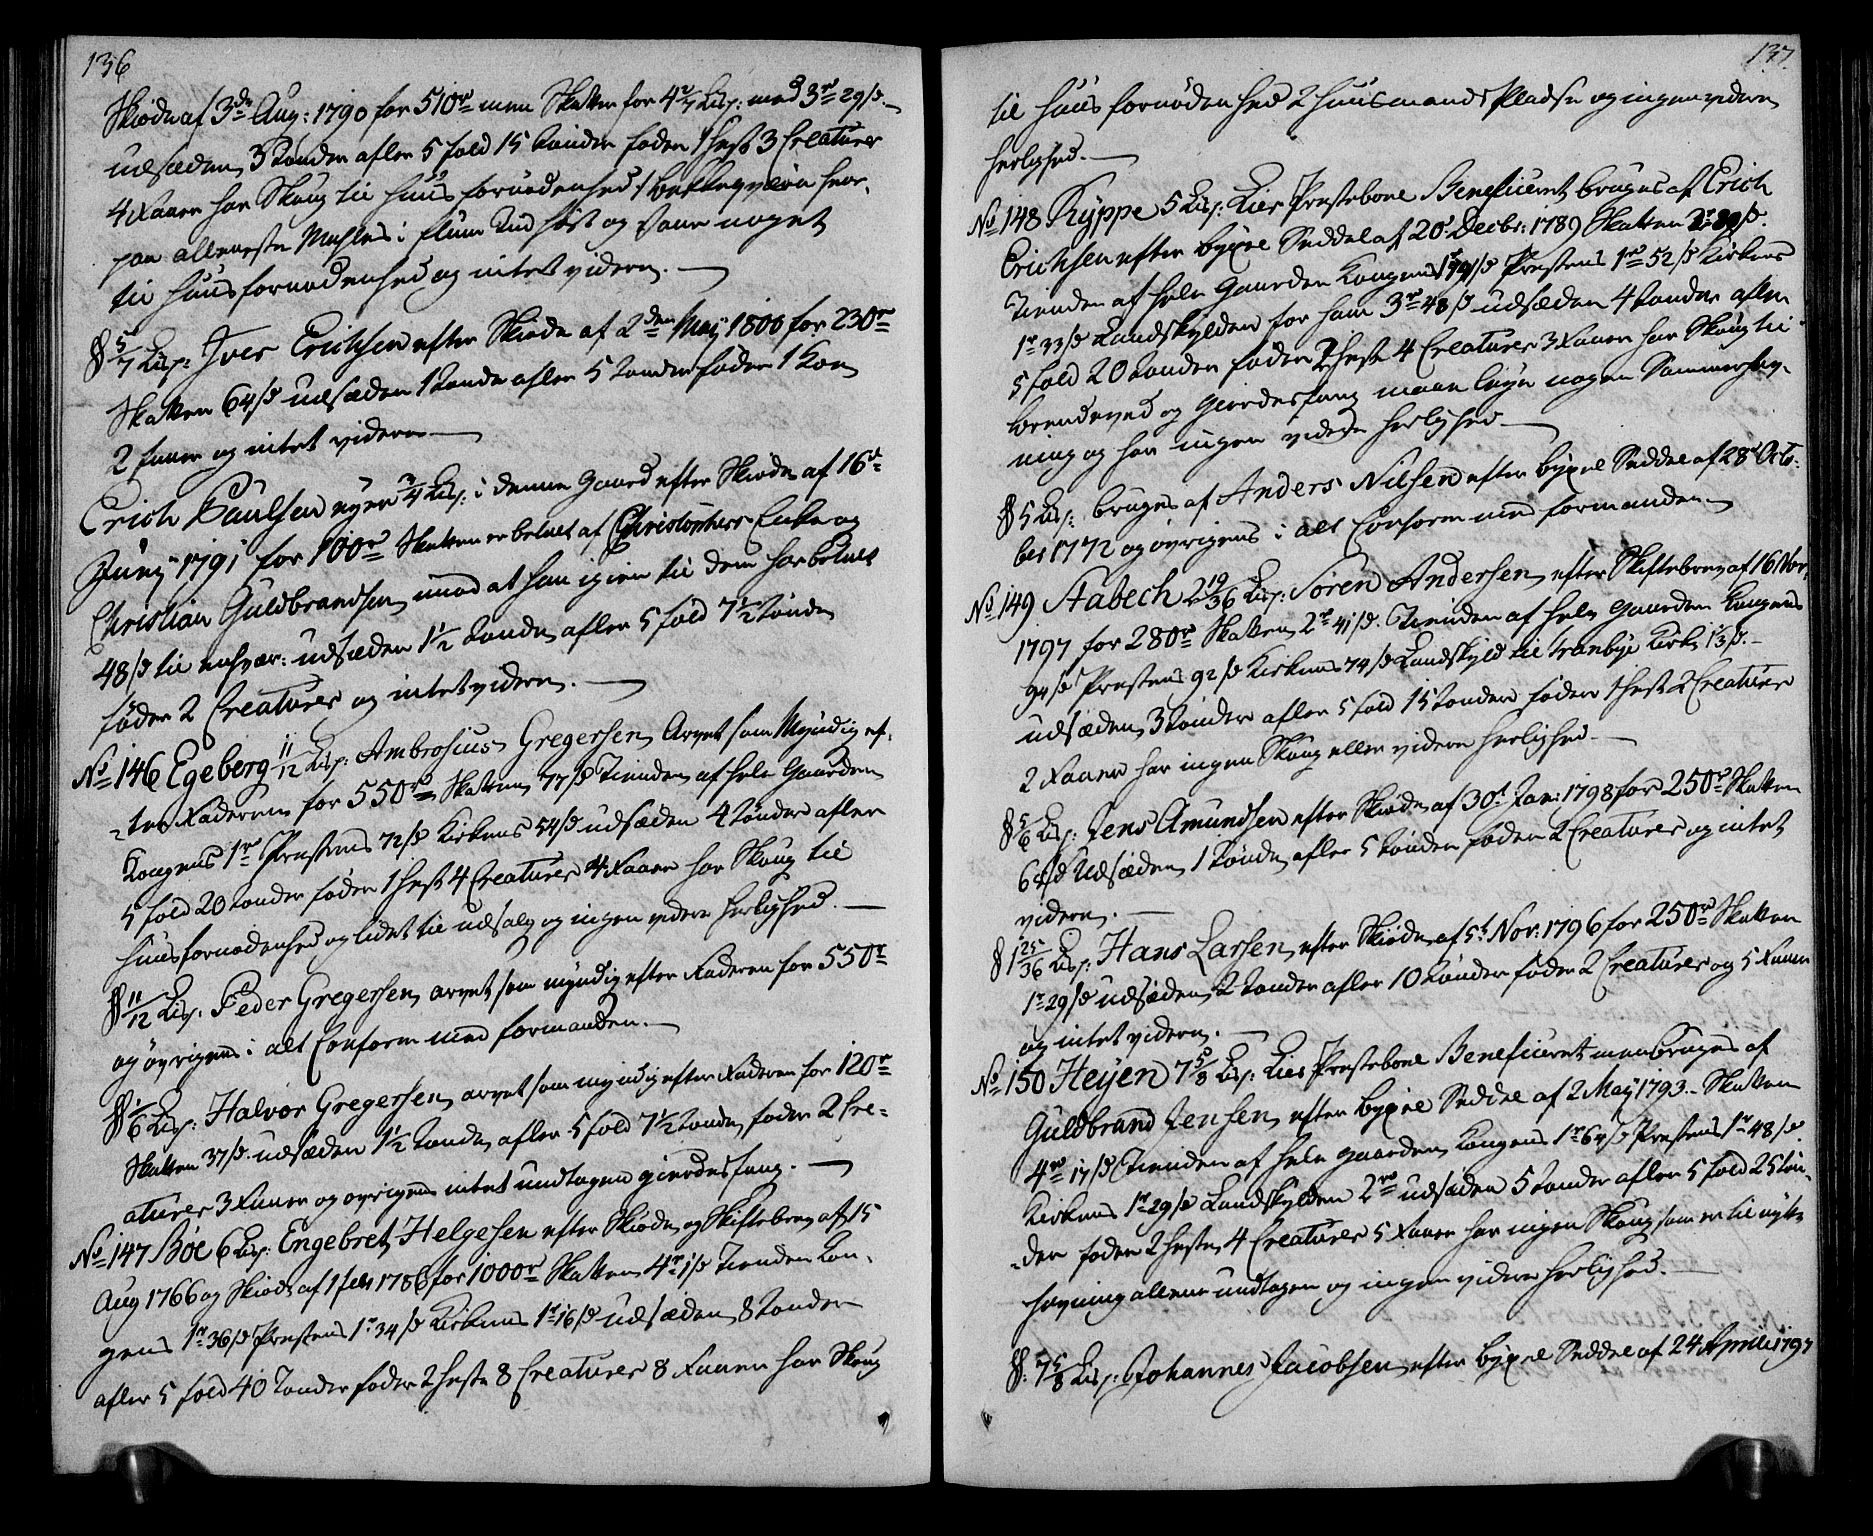 136
Skiøde af 3de Aug: 1790 for 510rd men Skatten for Lisp: med 3rd 29/s
udsæden 3 tønder afler 5 fold 15 tønder føder 1 hest 3 Creaturer
4 Faaer har Skoug til huus fornødenhed 1 bekkeqværn hvor-
paa alleneste Mahles i flum Tid høst og vaar noget
til huusfornødenhed og intet videre. —
§ 5/7 Lisp: Iver Erichsen efter Skiøde af 2den May 1800 for 230rd
Skatten 64/s udsæden 1 tønde afler 5 tønder føder 1 Koe
2 faaer og intet videre —
Erich Paulsen eyer 3/4 Lisp: i denne Gaard efter Skiøde af 16d
Juny 1791 for 100rd Skatten er betalt af Christophers Enke og
Christian Guldbrandsen imod at han igien til dem har betalt
48/s til enhver: udsæden 1½ tønde afler 5 fold 7½ tønde
føder 2 Creaturer og intet videre. —
No 146 Egeberg 11/12 Lisp: Ambrosius Gregersen Arvet som Myndig ef-
ter Faderen for 550rd Skatten 77/s Tienden af hele Gaarden
Kongens 1rd Prestens 72/s Kirkens 54/s udsæden 4 tønder afler
5 fold 20 tønder føder 1 hest 4 Creaturer 4 Faaer har Skoug til
huusfornødenhed og lidet til udsalg og ingen videre herlighed. —
§ 11/12 Lisp: Peder Gregersen arvet som myndig efter Faderen for 550rd
og øvrigens i alt Conform med formanden. —
§ 1/6 Lisp: Halvor Gregersen arvet som myndig efter Faderen for 120rd
Skatten 37/s udsæden 1½ tønde afler 5 fold 7½ tønde føder 2 Cre-
aturer 3 Faaer og øvrigens intet undtagen gierdesfang. —
No 147 Böe 6 Lisp: Engebret Helgesen efter Skiøde og Skiftebrev af 15
Aug 1766 og Skiøde af 1 feb 1786 for 1000rd Skatten 4rd 1/s Tienden Kon-
gens 1rd 36/s Prestens 1rd 34/s Kirkens 1rd 16/s udsæden 8 tønder
afler 5 fold 40 Tønder føder 2 heste 8 Creaturer 8 Faaer har Skoug
137.
til huus fornødenhed 2 huusmands Pladse og ingen videre
herlighed. —
No 148 Kyppe 5 Lisp: Lier Prestebole Beneficeret bruges af Erich
Erichsen efter bÿxel Seddel af 20d Decbr: 1789 Skatten /s.
Tienden af hele Gaarden Kongens Prestens 1rd 52/s Kirkens
1rd 33/s Landskylden for ham 3rd 48/s udsæden 4 tønder afler
5 fold 20 tønder føder 2 heste 4 Creaturer 3 Faaer har Skoug til
brendeved og Gierdesfang maae leye nogen Sommerhav-
ning og har ingen videre herlighed. —
§ 5 Lisp: bruges af Anders Nilsen efter bÿxel Seddel af 28d Octo-
ber 1772 og øvrigens i alt Conform med formanden —
No 149 Stabech 2 19/36 Lisp: Sören Andersen efter Skiftebrev af 16 Nov:
1797 for 280rd Skatten 2rd 41/s. Tienden af hele Gaarden Kongens
94/s Prestens 92/s Kirkens 74/s Landskyld til tranbÿe Kirke /s. —
udsæden 3 tønder afler 5 fold 15 tønder føder 1 hest 2 Creaturer
2 Faaer har ingen Skoug eller videre herlighed. —
§ 5/6 Lisp: Jens Amundsen efter Skiøde af 30d Jan: 1798 for 250rd Skatten
64/s Udsæden 1 tønde afler 5 tønder føder 2 Creaturer og intet
videre. —
§ 1 25/36 Lisp: Hans Larsen efter Skiøde af 5t Nov: 1796 for 250rd Skatten
1rd 29/s udsæden 2 tønder afler 10 tønder føder 2 Creaturer og 5 Faaer
og intet videre. —
No 150 Heÿen 7 5/8 Lisp: Lier Prestebole Beneficeret men bruges af
Guldbrand Jensen efter bÿxel Seddel af 2 May 1793. Skatten
4rd 17/s Tienden af hele gaarden Kongens 1rd 64/s Prestens 1rd 48/s
Kirkens 1rd 29/s Landskylden 2rd udsæden 5 tønder afler 5 fold 25 tøn-
der føder 2 heste 4 Creaturer 5 Faaer har ingen Skoug som er til nytte
havning allene undtagen og ingen videre herlighed. —
§: 7 5/8 Lisp: Johannes Jacobsen efter bÿxel Seddel af 24 April 1797